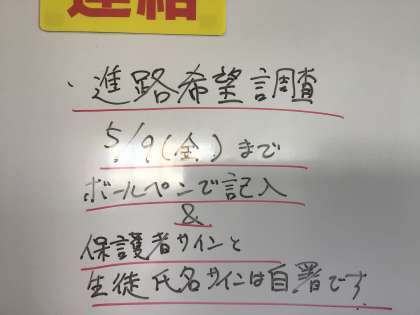 連絡
・進路希望調査
5/9(金)まで
ボールペンで記入
&
保護者サインと
生徒氏名サインは自署です